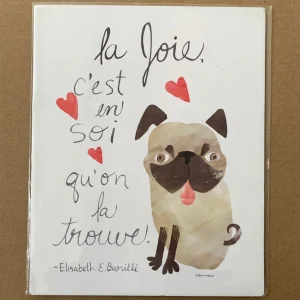 la Joie,
c'est
en
soi
qu'on
la
trouve.
- Elisabeth E. Barillé